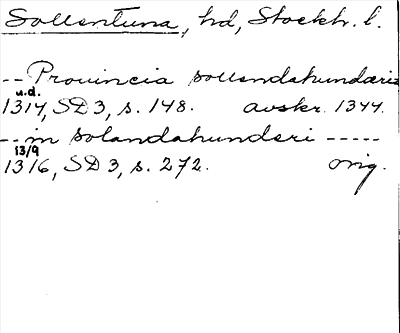 Sollentuna, hd, Stockh. l.
-- Prouincia sollendahundaris
u.d.
1314, SD 3, s. 148. avskr. 1344.
-- in solandahunderi -----
13/9
1316, SD 3, s. 272. orig.